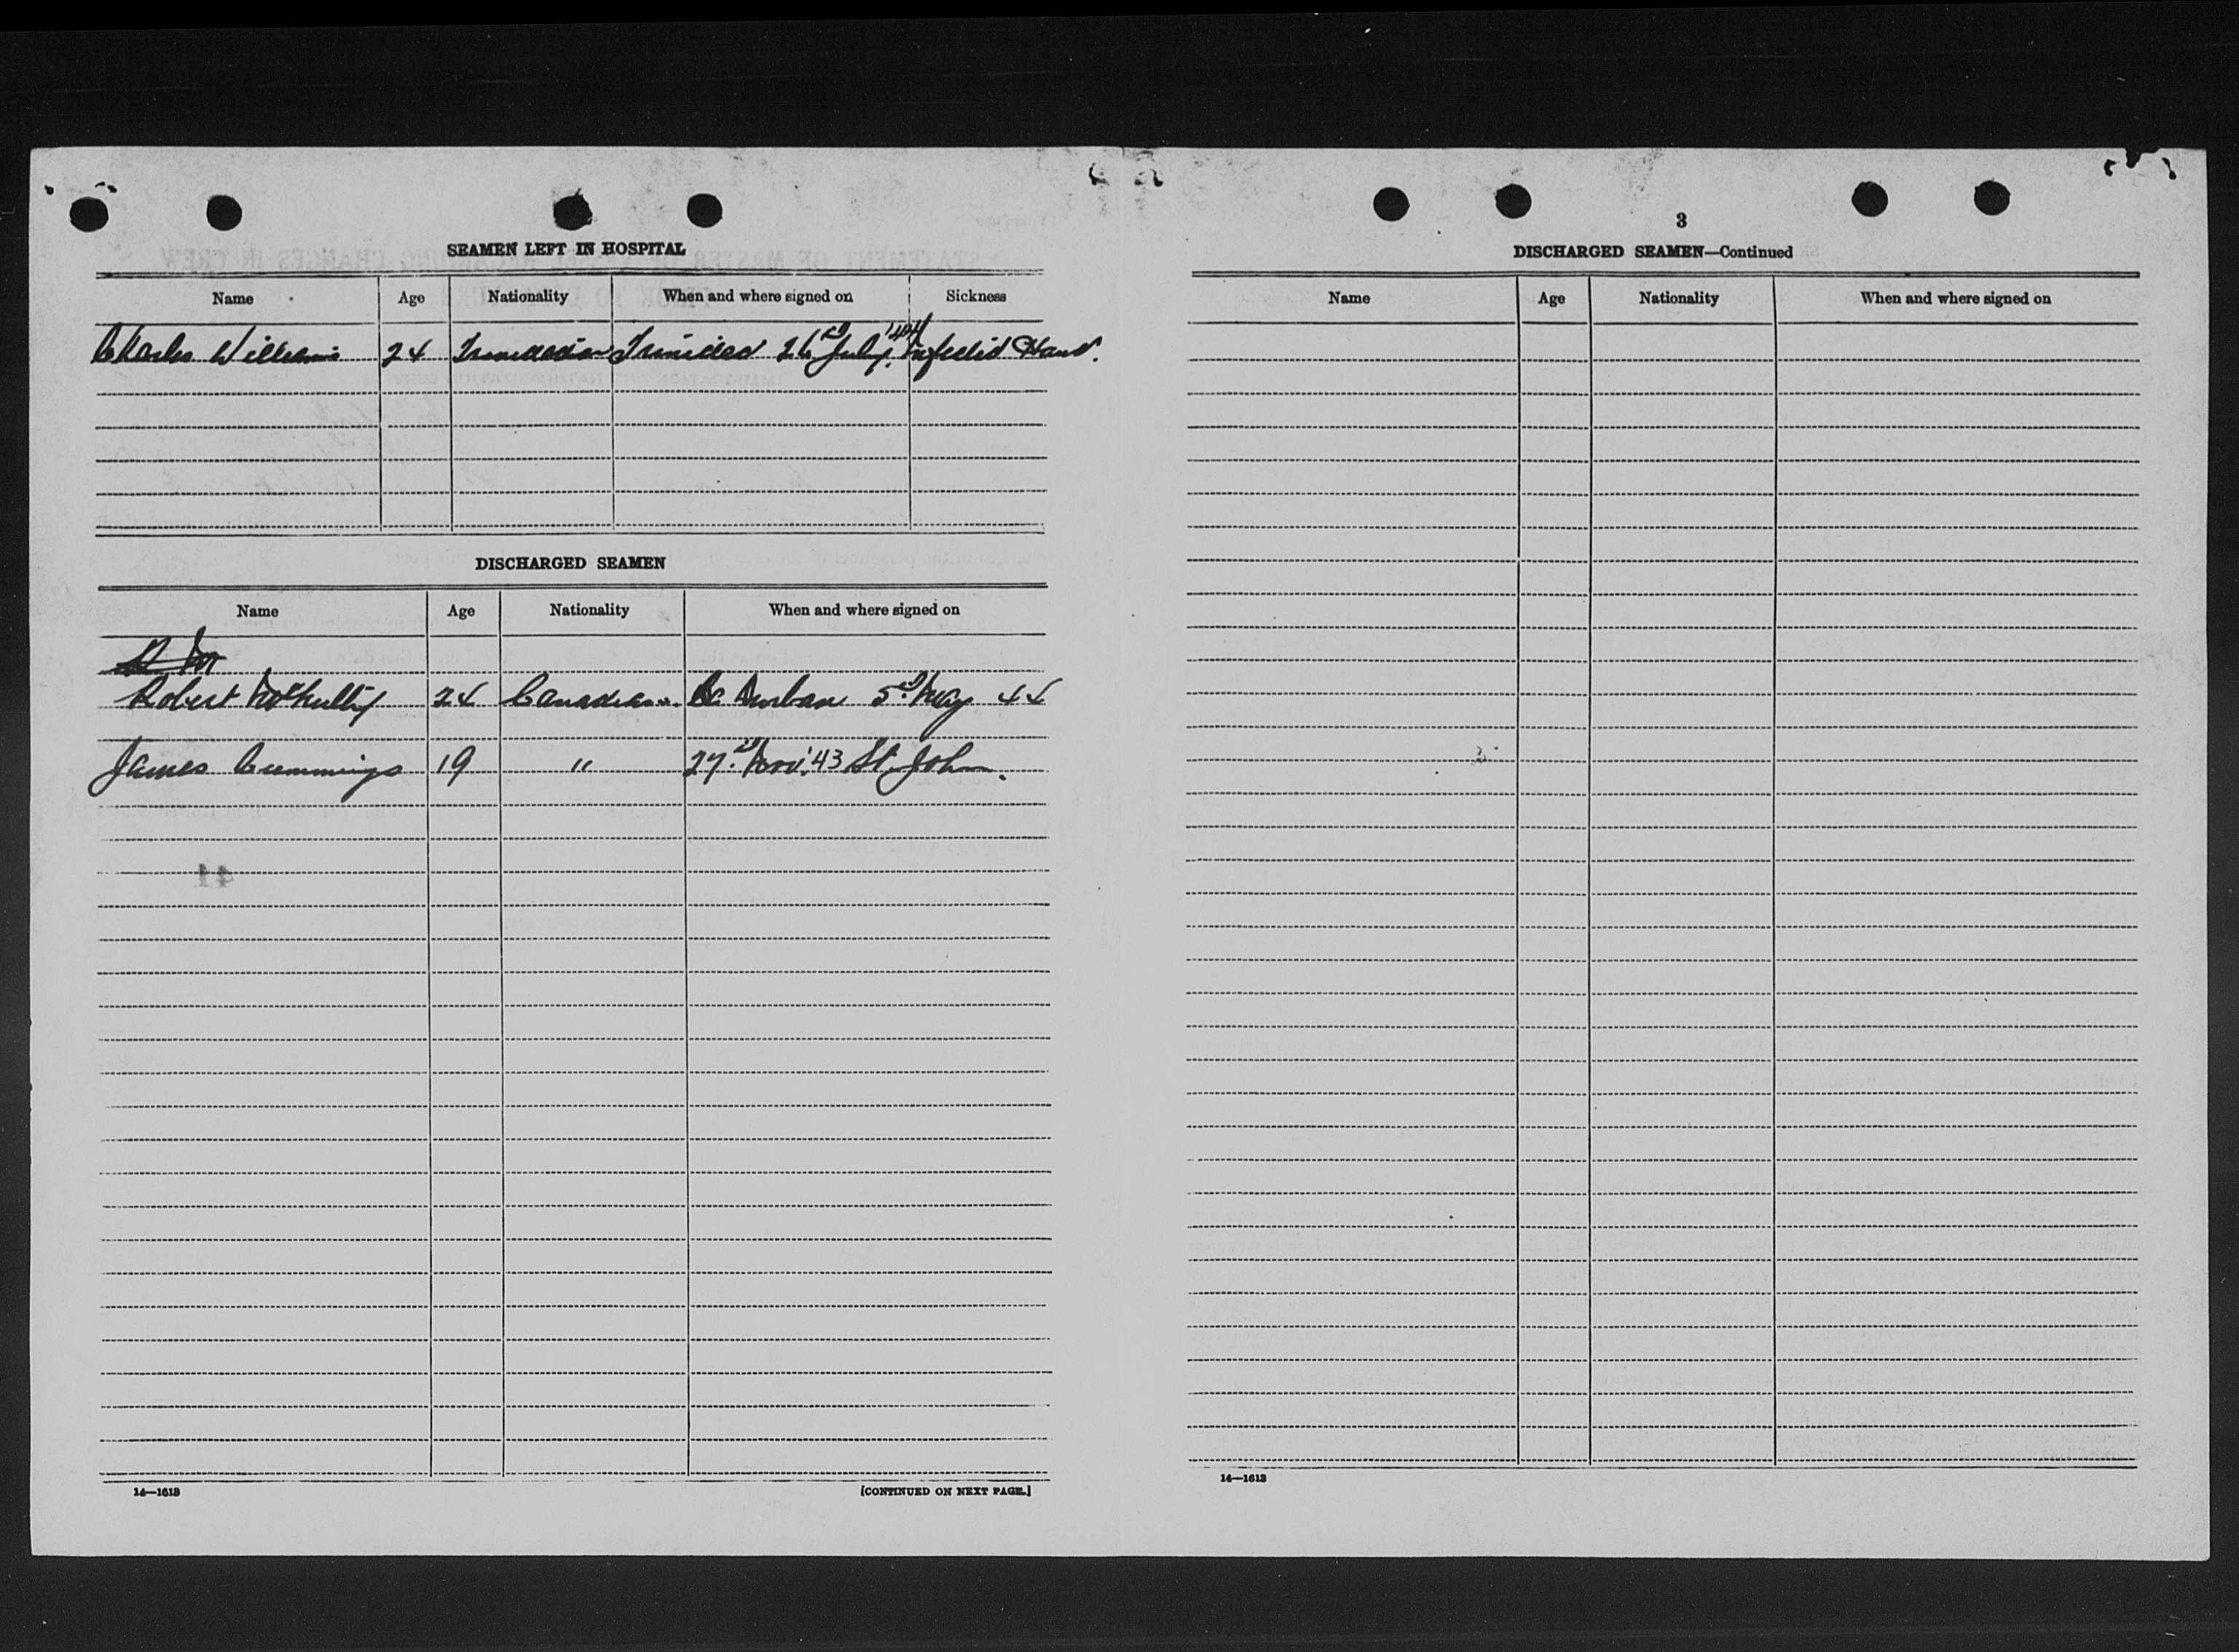 SEAMEN LEFT IN HOSPITAL
Name Age Nationality When and where signed on Sickness
Charles Williams 24 Trinidadian Trinidad 26th July, '44 Infected Hand.
DISCHARGED SEAMEN
Name Age Nationality When and where signed on
Robert 24 Canadian. Durban 5th May 44
James Cummings 19 " 27th Nov. '43 St. John.
41
14—1613 [CONTINUED ON NEXT PAGE.]
3
DISCHARGED SEAMEN—Continued
Name Age Nationality When and where signed on
14—1613